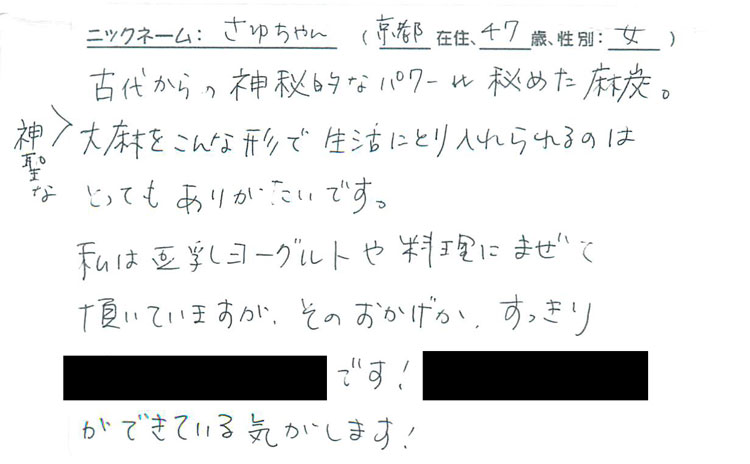 ニックネーム： さゆちゃん （ 京都 在住、47 歳、性別： 女 ）
古代からの神秘的なパワーを秘めた麻炭。
神聖な
大麻をこんな形で生活にとり入れられるのは
とってもありがたいです。
私は豆乳ヨーグルトや料理にまぜて
頂いていますが、そのおかげか、すっきり
です！
ができている気がします！